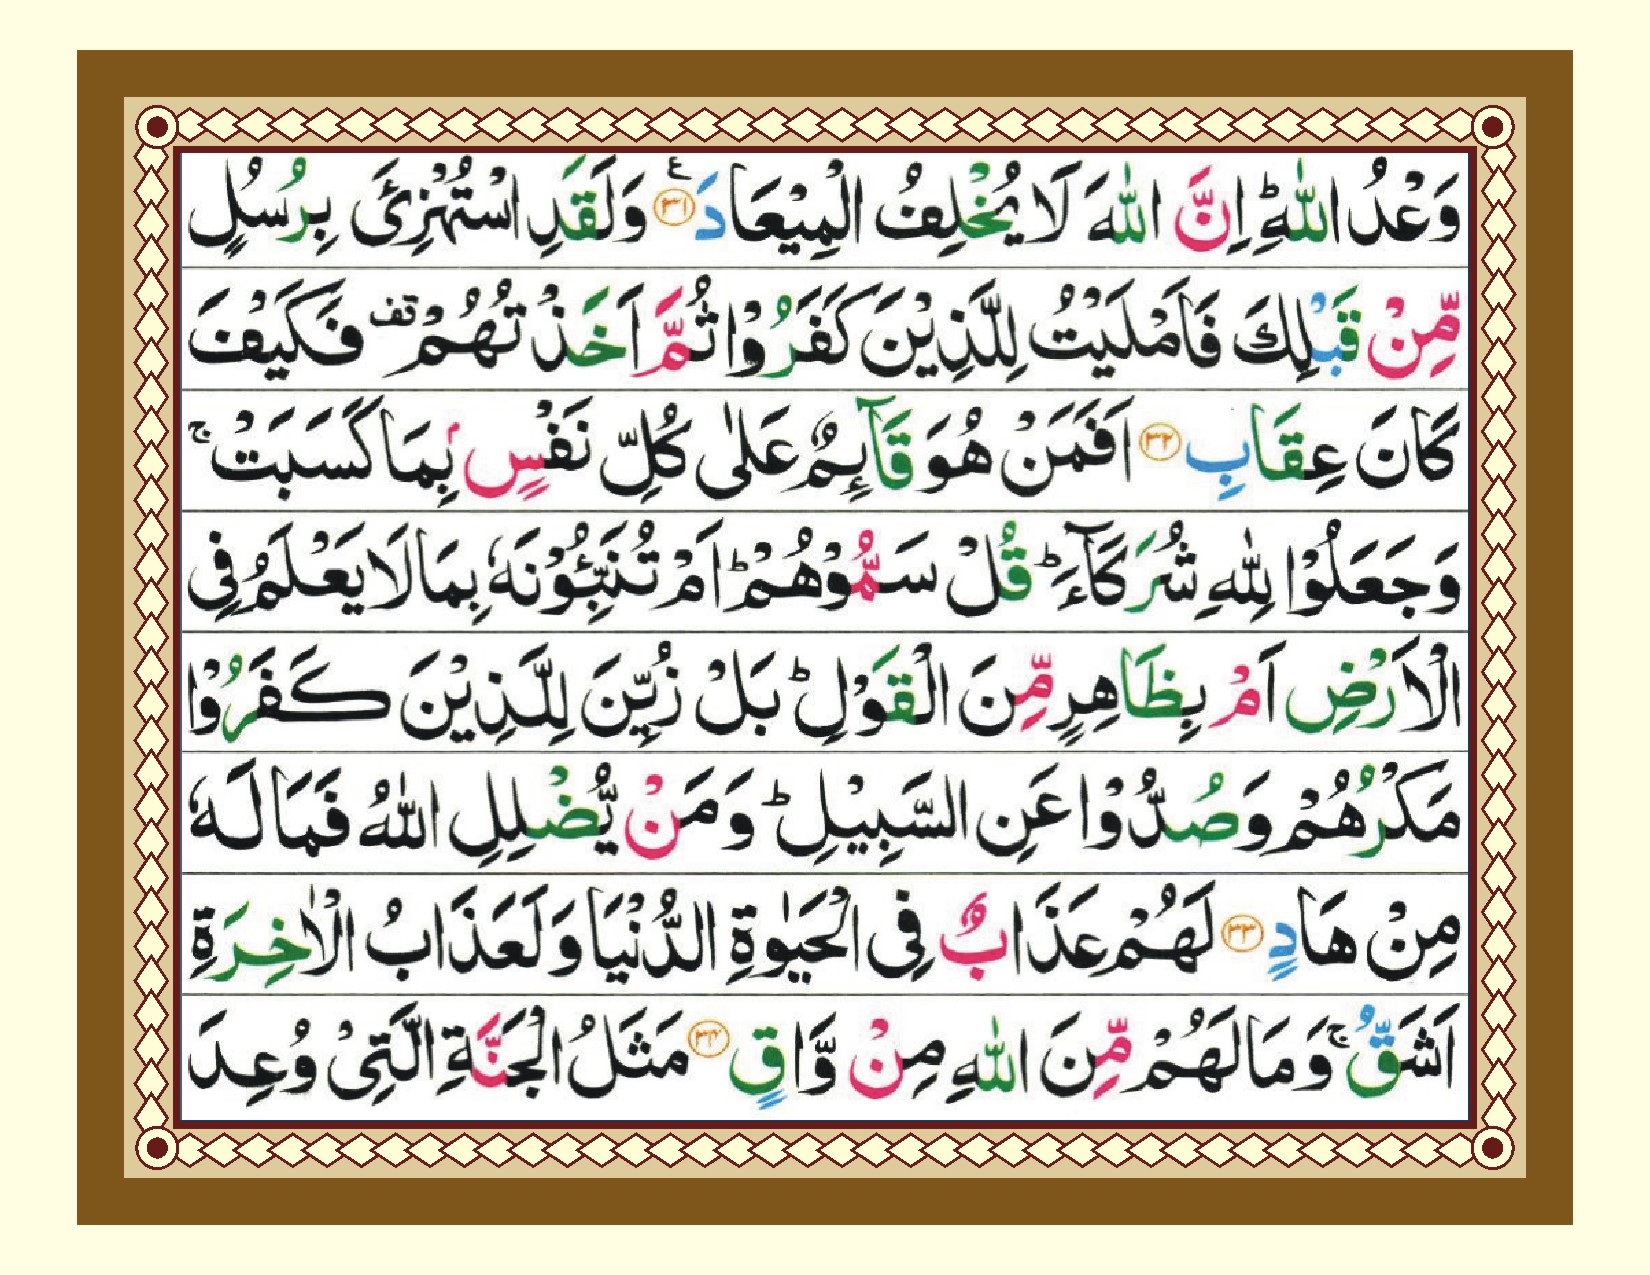 وَعْدُ اللّٰهِ ؕ اِنَّ اللّٰهَ لَا يُخْلِفُ الْمِيْعَادَ ﴿۳۱﴾ ع وَلَقَدِ اسْتُهْزِئَ بِرُسُلٍ
مِّنْ قَبْلِكَ فَاَمْلَيْتُ لِلَّذِيْنَ كَفَرُوْا ثُمَّ اَخَذْتُهُمْ قف فَكَيْفَ
كَانَ عِقَابِ ﴿۳۲﴾ اَفَمَنْ هُوَ قَآئِمٌ عَلٰى كُلِّ نَفْسٍۭ بِمَا كَسَبَتْ ۚ
وَجَعَلُوْا لِلّٰهِ شُرَكَآءَ ؕ قُلْ سَمُّوْهُمْ ؕ اَمْ تُنَبِّـُٔوْنَهٗ بِمَا لَا يَعْلَمُ فِى
الْاَرْضِ اَمْ بِظَاهِرٍ مِّنَ الْقَوْلِ ؕ بَلْ زُيِّنَ لِلَّذِيْنَ كَفَرُوْا
مَكْرُهُمْ وَصُدُّوْا عَنِ السَّبِيْلِ ؕ وَمَنْ يُّضْلِلِ اللّٰهُ فَمَا لَهٗ
مِنْ هَادٍ ﴿۳۳﴾ لَهُمْ عَذَابٌ فِى الْحَيٰوةِ الدُّنْيَا وَلَعَذَابُ الْاٰخِرَةِ
اَشَقُّ ۚ وَمَا لَهُمْ مِّنَ اللّٰهِ مِنْ وَّاقٍ ﴿۳۴﴾ مَثَلُ الْجَنَّةِ الَّتِىْ وُعِدَ